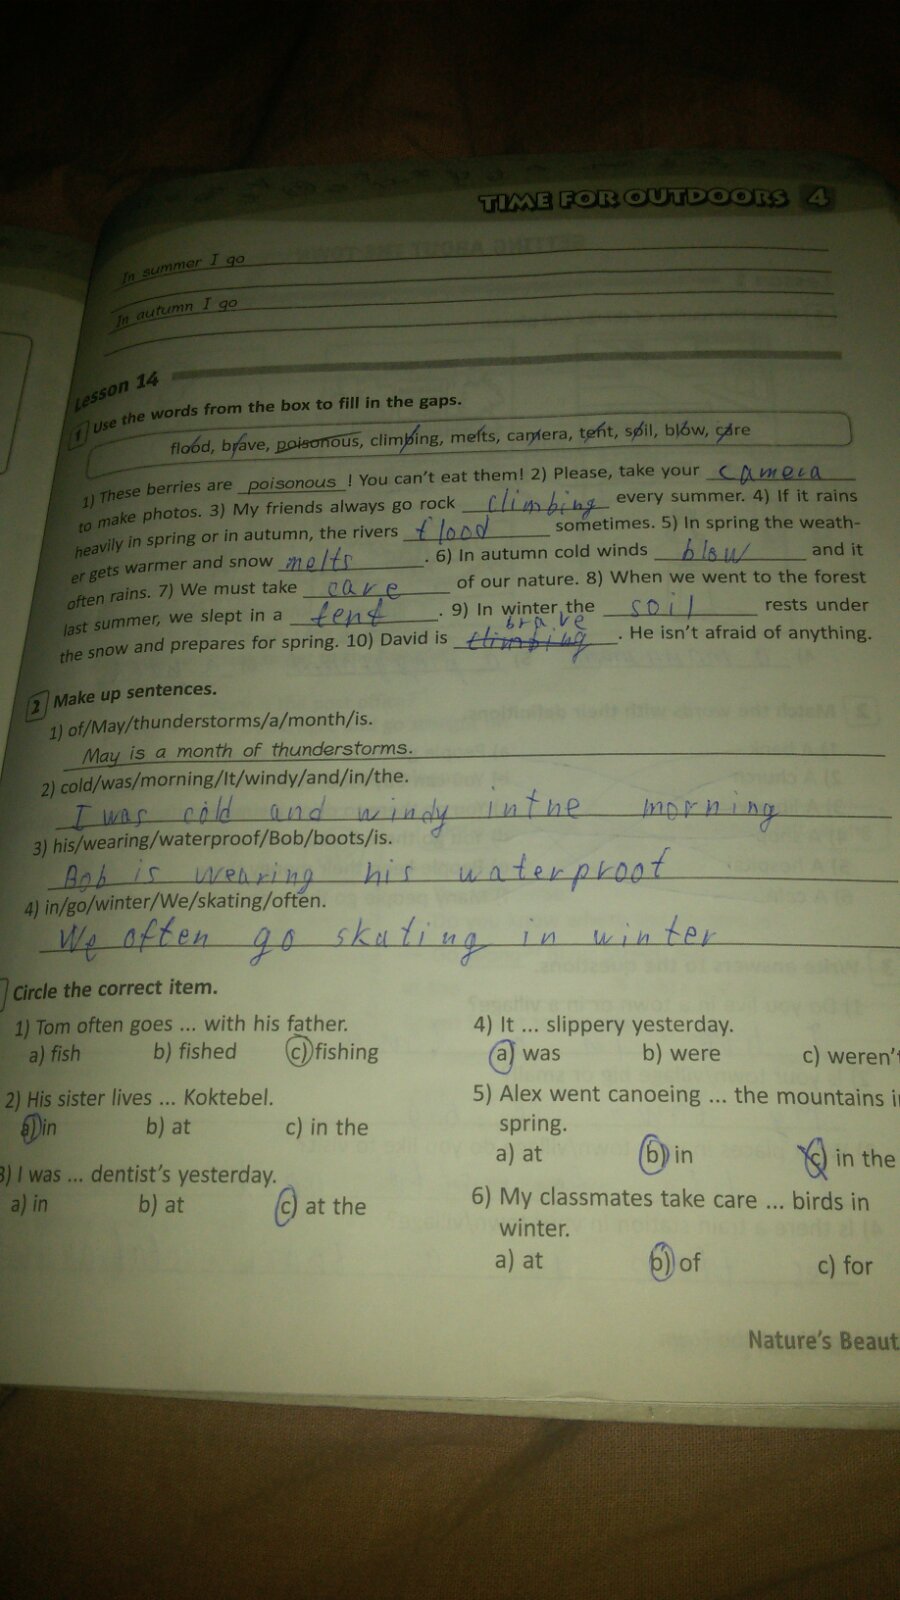 TIME FOR OUTDOORS 4
In summer I go
In autumn I go
Lesson 14
1 Use the words from the box to fill in the gaps.
flood, brave, poisonous, climbing, melts, camera, tent, soil, blow, care
1) These berries are poisonous! You can't eat them! 2) Please, take your camera
to make photos. 3) My friends always go rock climbing every summer. 4) If it rains
heavily in spring or in autumn, the rivers flood sometimes. 5) In spring the weath-
er gets warmer and snow melts. 6) In autumn cold winds blow and it
often rains. 7) We must take care of our nature. 8) When we went to the forest
last summer, we slept in a tent. 9) In winter the soil rests under
brave
the snow and prepares for spring. 10) David is climbing. He isn't afraid of anything.
2 Make up sentences.
1) of/May/thunderstorms/a/month/is.
May is a month of thunderstorms.
2) cold/was/morning/It/windy/and/in/the.
I was cold and windy in the morning
3) his/wearing/waterproof/Bob/boots/is.
Bob is wearing his waterproof
4) in/go/winter/We/skating/often.
We often go skating in winter
Circle the correct item.
1) Tom often goes ... with his father.
a) fish b) fished c) fishing
2) His sister lives ... Koktebel.
a) in b) at c) in the
3) I was ... dentist's yesterday.
a) in b) at c) at the
4) It ... slippery yesterday.
a) was b) were c) weren't
5) Alex went canoeing ... the mountains in
spring.
a) at b) in c) in the
6) My classmates take care ... birds in
winter.
a) at b) of c) for
Nature's Beaut